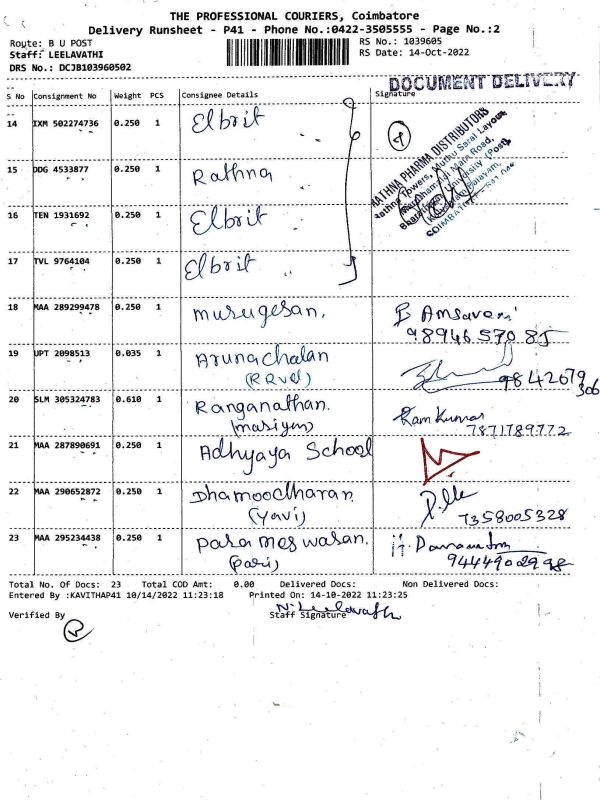 THE PROFESSIONAL COURIERS, Coimbatore
Delivery Runsheet - P41 - Phone No.:0422-3505555 - Page No.:2
Route: B U POST RS No.: 1039605
Staff: LEELAVATHI RS Date: 14-Oct-2022
DRS No.: DCJB103960502
DOCUMENT DELIVERY
S No Consignment No Weight PCS Consignee Details Signature
14 IXM 502274736 0.250 1 Elbrit 4
RATHNA PHARMA DISTRIBUTORS
Towers, Muthu Saral Layout
Maruthamalai Main Road,
University (Post)
COIMBATORE
15 DDG 4533877 0.250 1 Rathna
16 TEN 1931692 0.250 1 Elbrit
17 TVL 9764104 0.250 1 Elbrit
18 MAA 289299478 0.250 1 Murugesan. Amsaveni
98946 570 85
19 UPT 2098513 0.035 1 Arunachalan
9842679
306
20 SLM 305324783 0.610 1 Ranganathan. Ram Kumar
7871789772
21 MAA 287890691 0.250 1 Adhyaya School
22 MAA 290652872 0.250 1 Dhamoodharan
(Yavi) 7358005328
23 MAA 295234438 0.250 1 Parameswasan.
(Pari) 9444902998
Total No. Of Docs: 23 Total COD Amt: 0.00 Delivered Docs: Non Delivered Docs:
Entered By :KAVITHAP41 10/14/2022 11:23:18 Printed On: 14-10-2022 11:23:25
N. Leelavathi
Verified By Staff Signature